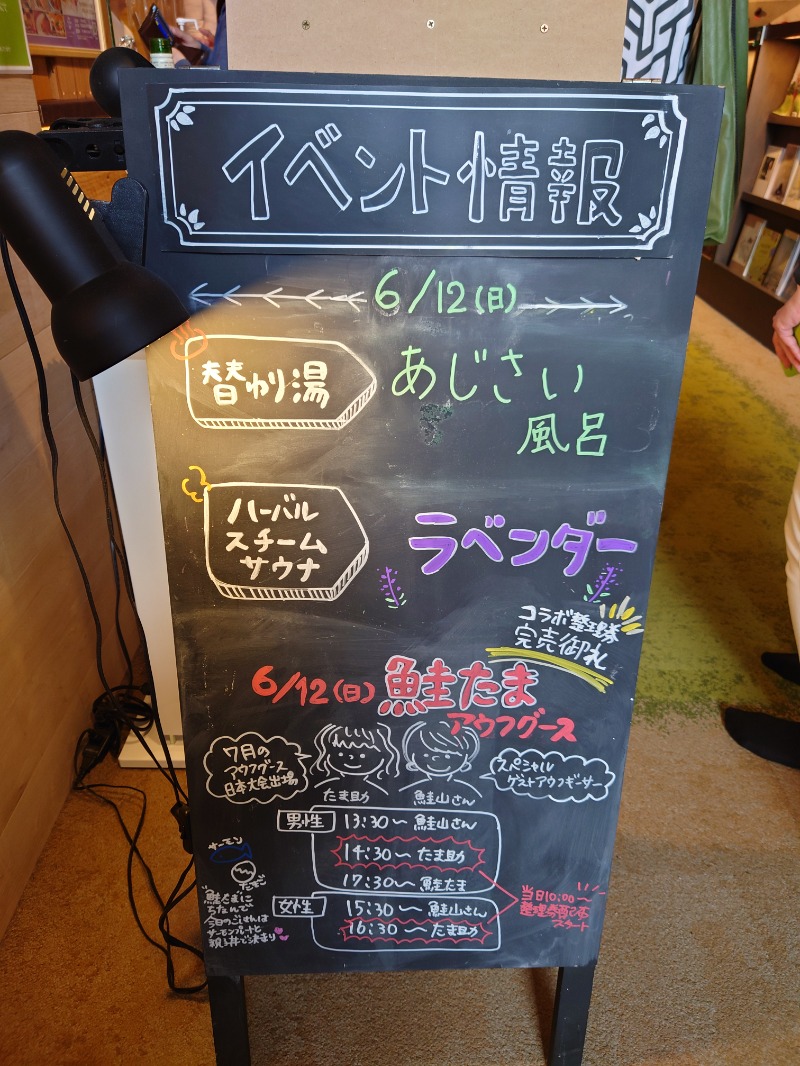 イベント情報
6/12(日)
替わり湯
あじさい
風呂
ハーバル
スチーム
サウナ
ラベンダー
コラボ整理券
完売御礼
6/12(日) 鮭たま
アウフグース
7月の
アウフグース
日本大会出場
たま助
鮭山さん
スペシャル
ゲストアウフギーサー
男性
13:30〜 鮭山さん
14:30〜 たま助
17:30〜 鮭たま
女性
15:30〜 鮭山さん
16:30〜 たま助
当日10:00〜
整理券配布
スタート
サーモン
たまご
鮭たまに
ちなんで
今日のごはんは
サーモンプレートと
親子丼で決まり